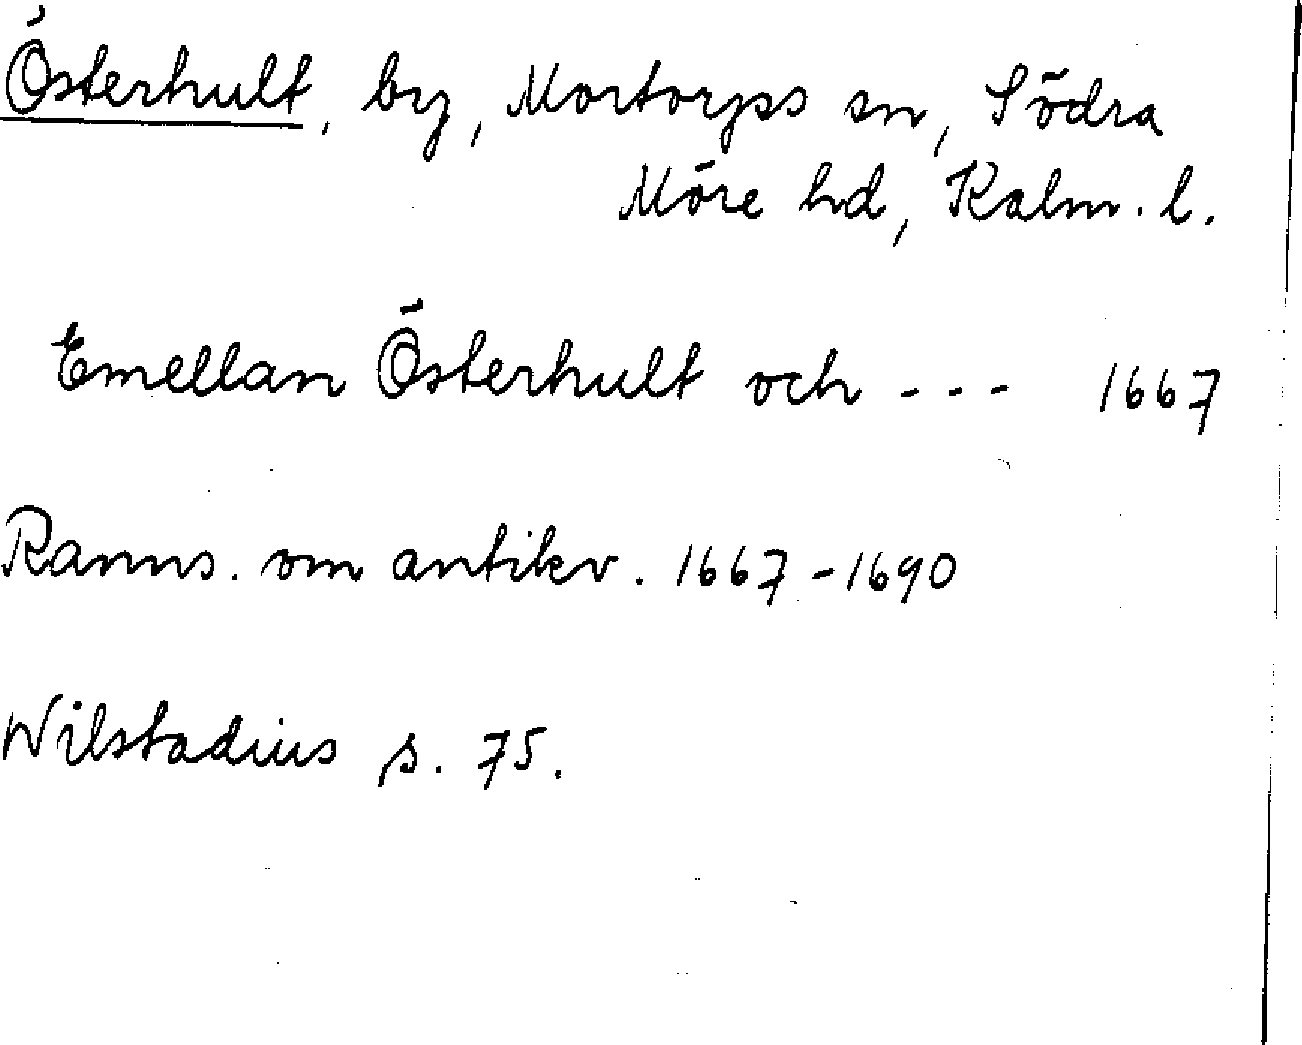 Österhult, by, Mortorps sn, Södra
Möre hd, Kalm. l.
Emellan Österhult och --- 1667
Ranns. om antikv. 1667-1690
Wilstadius s. 75.